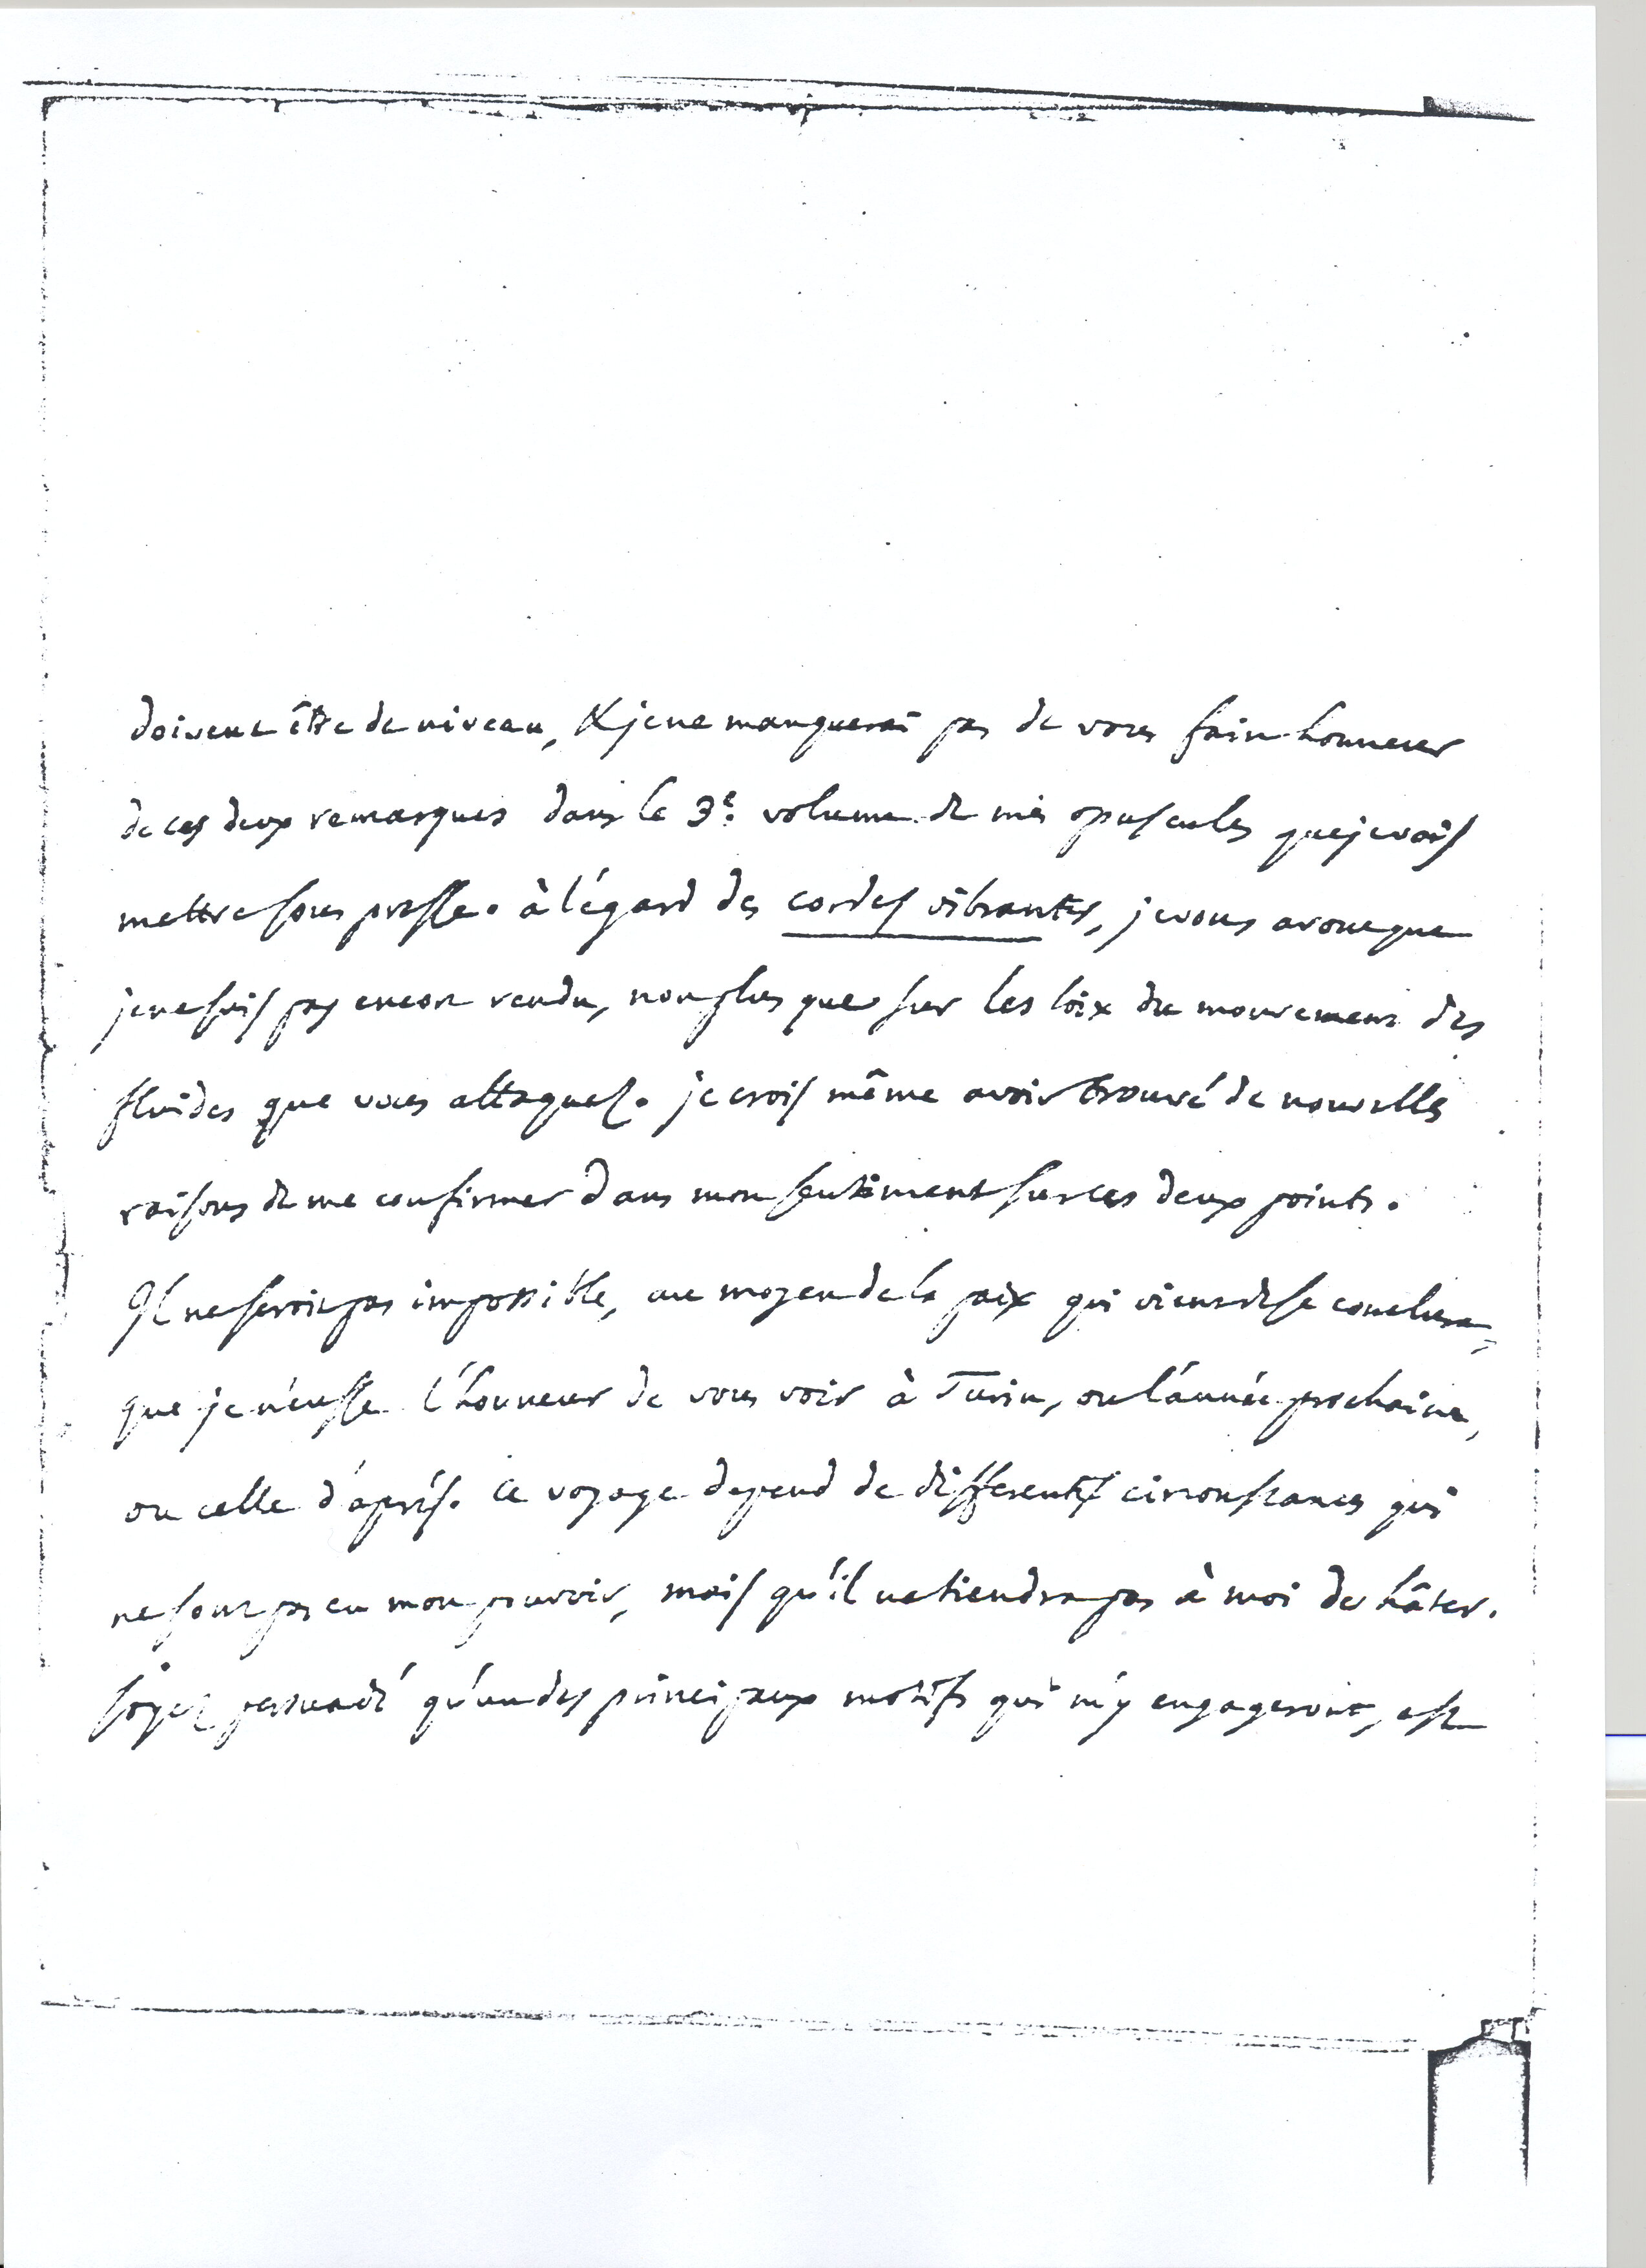 doivent être de niveau, & je ne manquerai pas de vous faire honneur
de ces deux remarques dans le 3e. volume de mes opuscules que je vais
mettre sous presse. à l'égard des cordes vibrantes, je vous avoue que
je ne suis pas encore rendu, non plus que sur les loix du mouvement des
fluides que vous attaquez. je crois même avoir trouvé de nouvelles
raisons de me confirmer dans mon sentiment sur ces deux points.
Il ne seroit pas impossible, au moyen de la paix qui vient de se conclure,
que je n'eusse l'honneur de vous voir à Turin, ou l'année prochaine,
ou celle d'après. Ce voyage depend de differentes circonstances qui
ne sont pas en mon pouvoir, mais qu'il ne tiendra pas à moi de hâter.
soyez persuadé qu'un des principaux motifs qui m'y engageroit, est